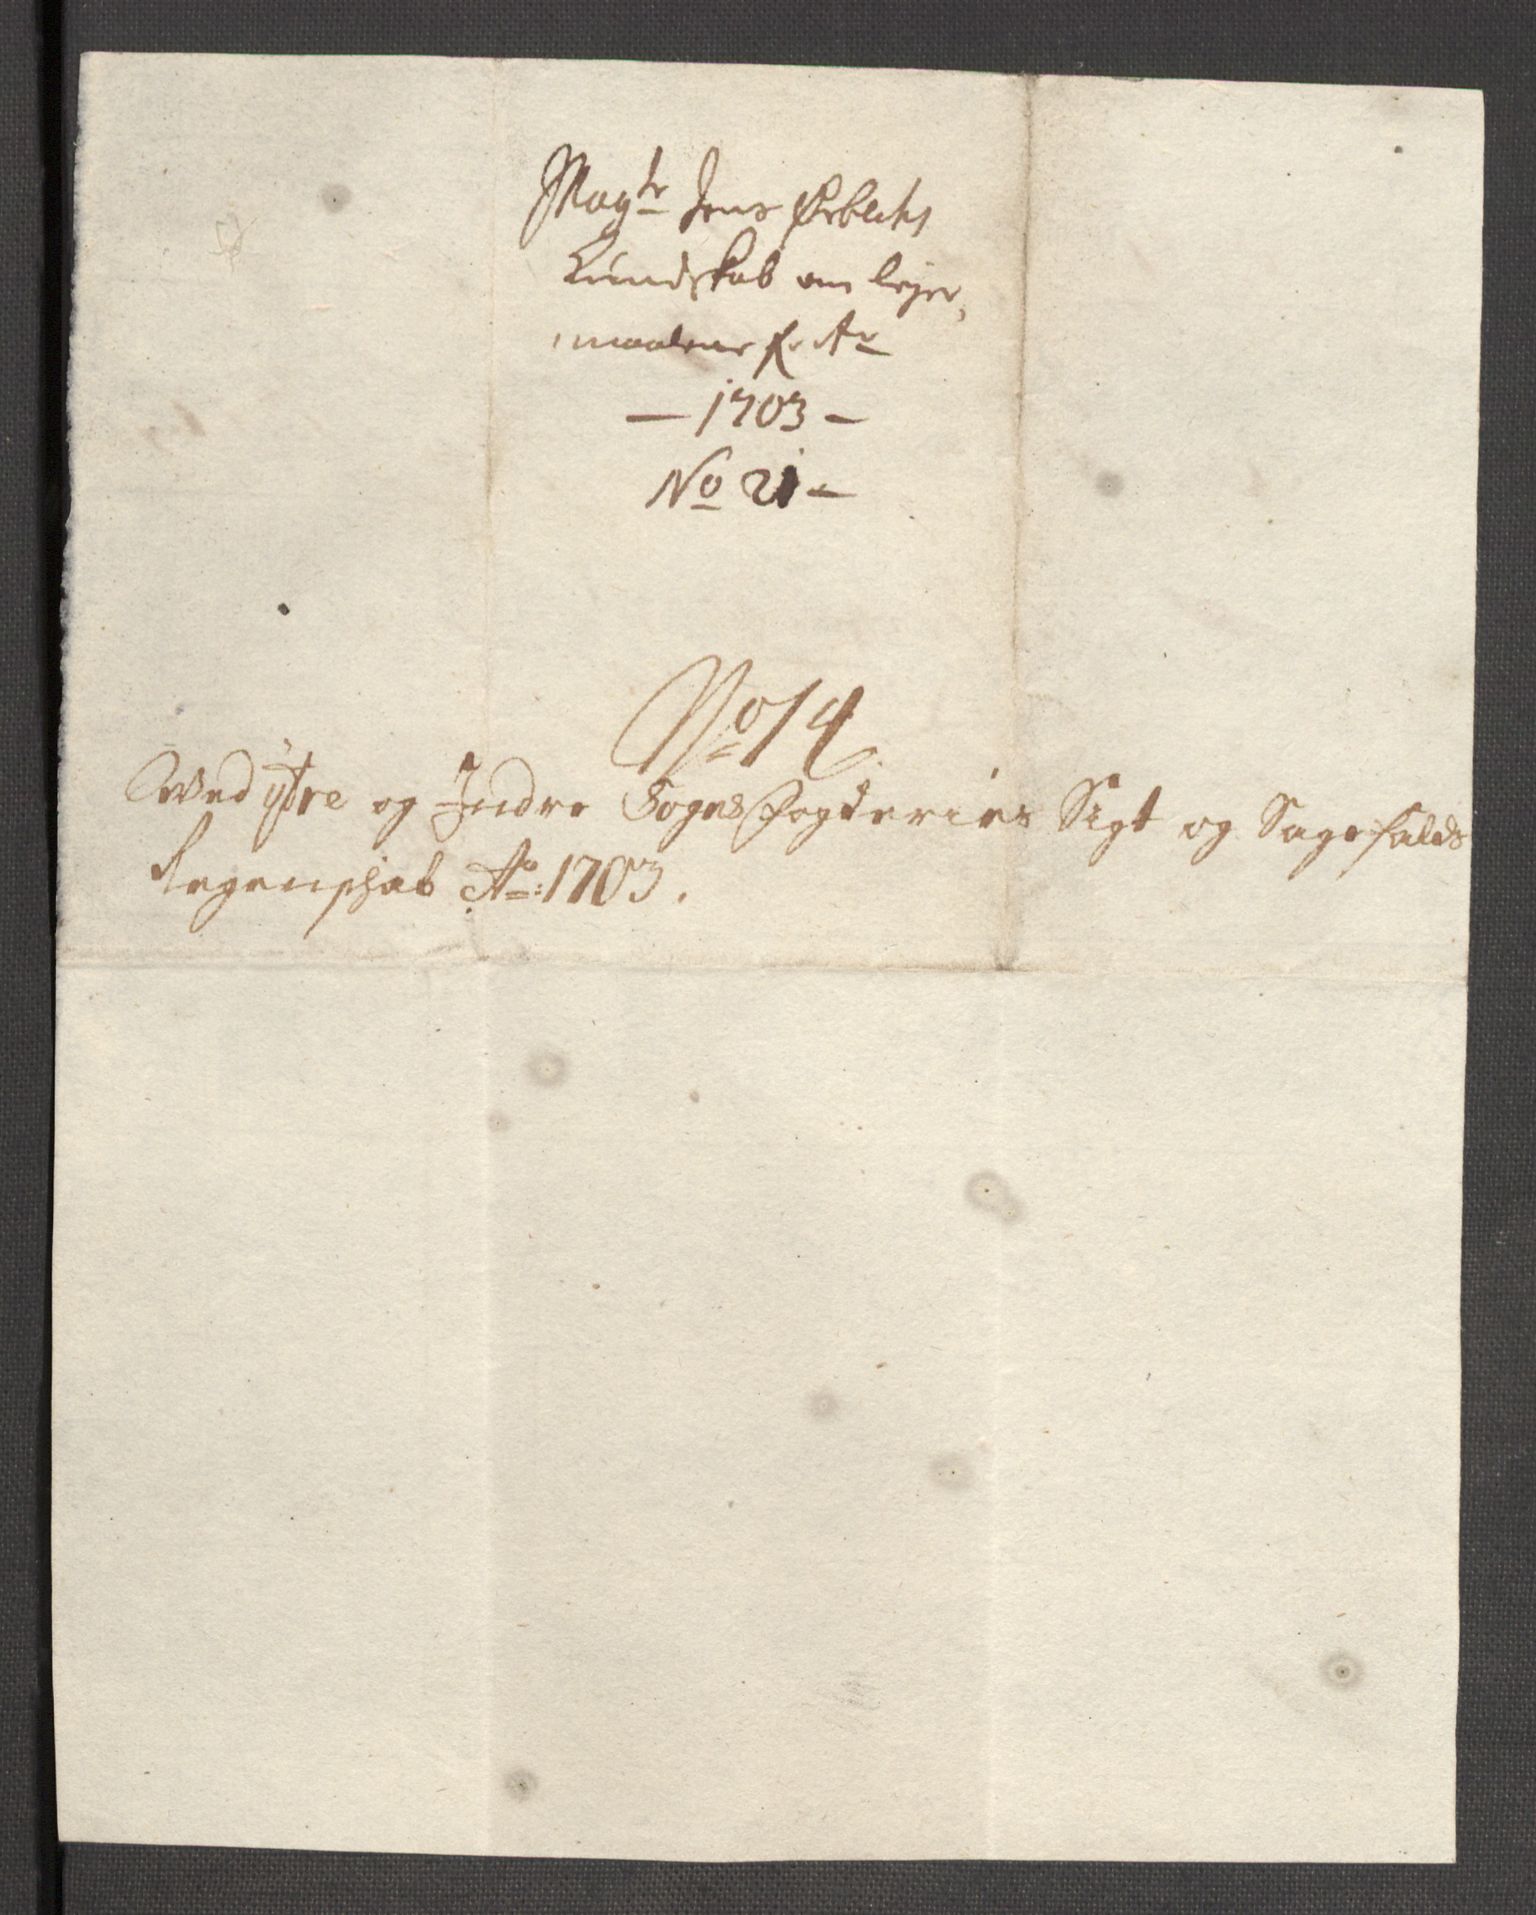 Mag:r Jens Ørbechs
Kundskab om lejer,
maalene for A:o
— 1703 —
No 21 —
No 14
Wed ÿtre og Indre Sogns fogderies Sigt og Sagefalds
Regenschab A:o: 1703.